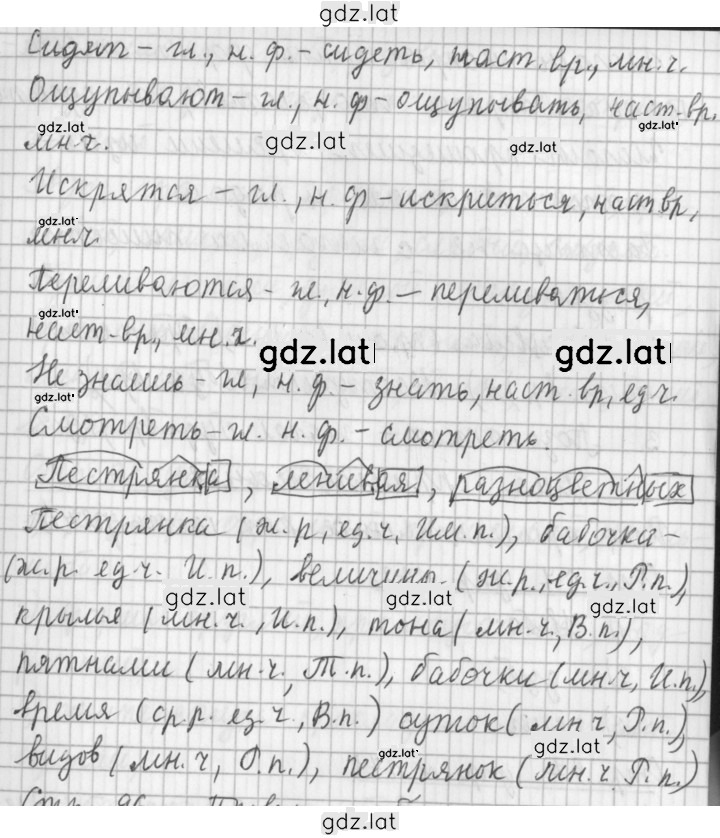 gdz.lat
Сидят – гл., н. ф. – сидеть, наст. вр., мн.ч.
Ощупывают – гл., н. ф – ощупывать, наст-вр.
gdz.lat gdz.lat gdz.lat gdz.lat
мн.ч.
Искрятся – гл., н. ф – искриться, наст вр,
gdz.lat
мн.ч
Переливаются – гл., н.ф. – переливаться,
gdz.lat
наст-вр., мн.ч.
gdz.lat gdz.lat
Не знаешь – гл, н. ф. – знать, наст. вр, ед.ч.
gdz.lat
Смотреть – гл. н. ф. – смотреть.
Пестрянка, ленивая, разноцветных
Пестрянка (ж.р, ед.ч, Им.п.), бабочка –
(ж.р. ед.ч. И.п.), величины (ж.р., ед.ч., Р.п.),
gdz.lat gdz.lat gdz.lat
крылья (мн.ч., И.п.), тона (мн.ч., В.п.),
пятнами (мн.ч, Т.п.), бабочки (мн.ч, И.п.),
время (ср.р. ед.ч., В.п.) суток (мн ч, Р.п.),
gdz.lat gdz.lat
видов (мн.ч, Р.п.), пестрянок (мн.ч. Р.п.)
gdz.lat